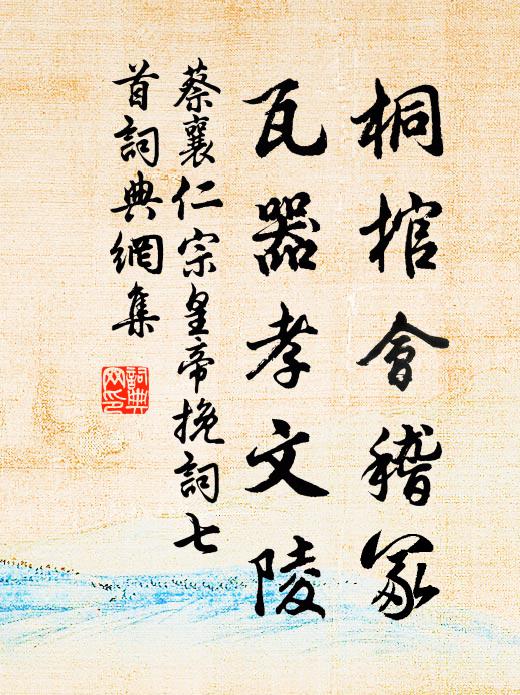 桐棺會稽冢
瓦器孝文陵
蔡襄仁宗皇帝挽詞七
首詞典網集
詞典
网印